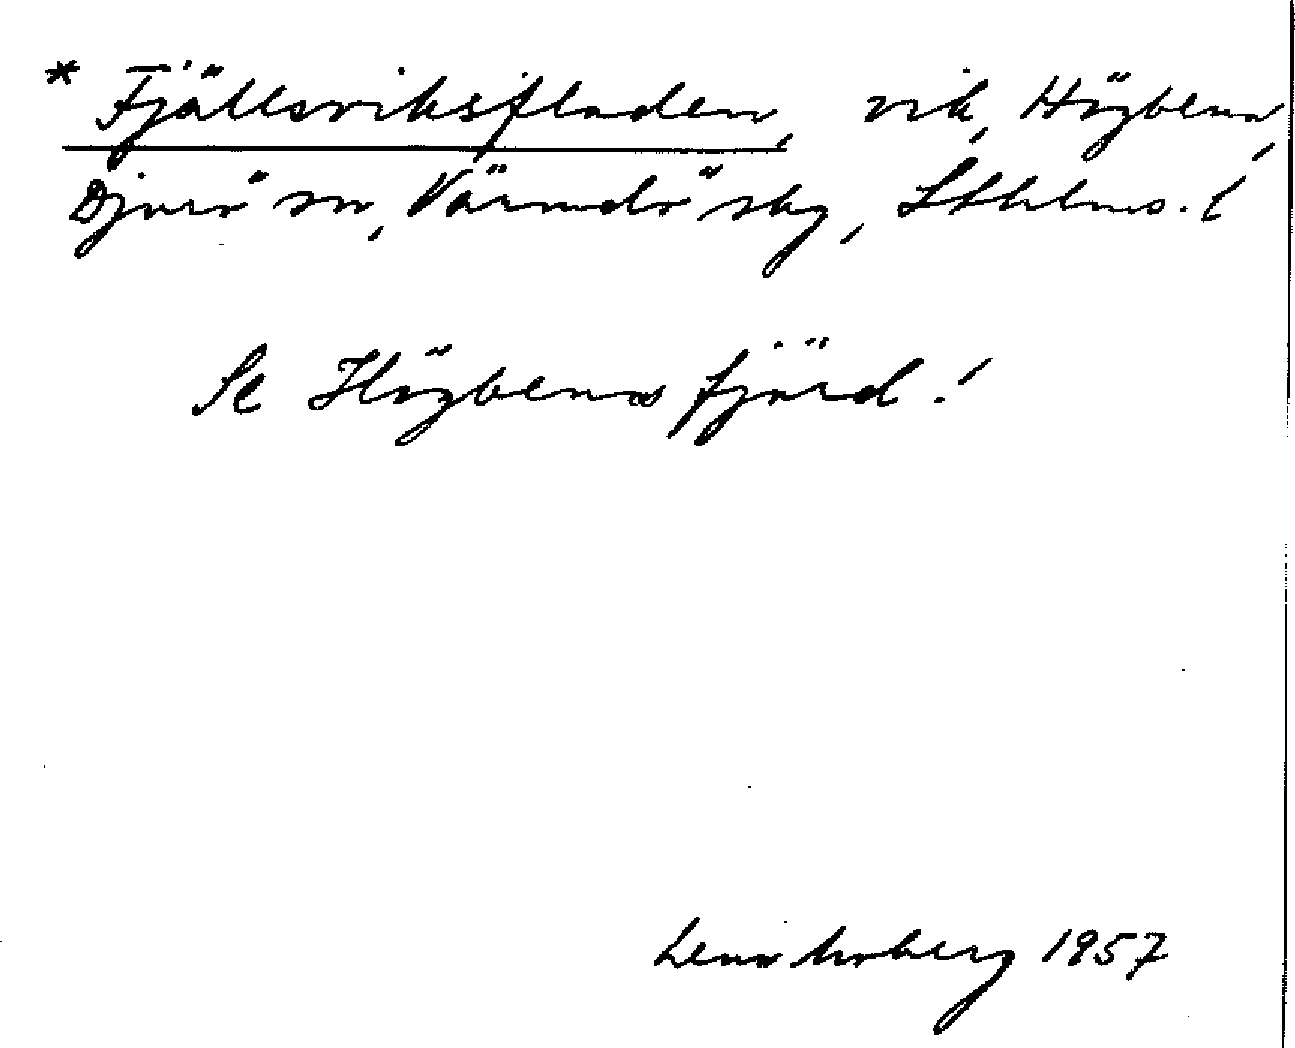 * Fjällsviksfladen, vik, Högbena,
Djurö sn, Värmdö skg, Sthlms. l
Se Högbena fjärd!
Lena Moberg 1957